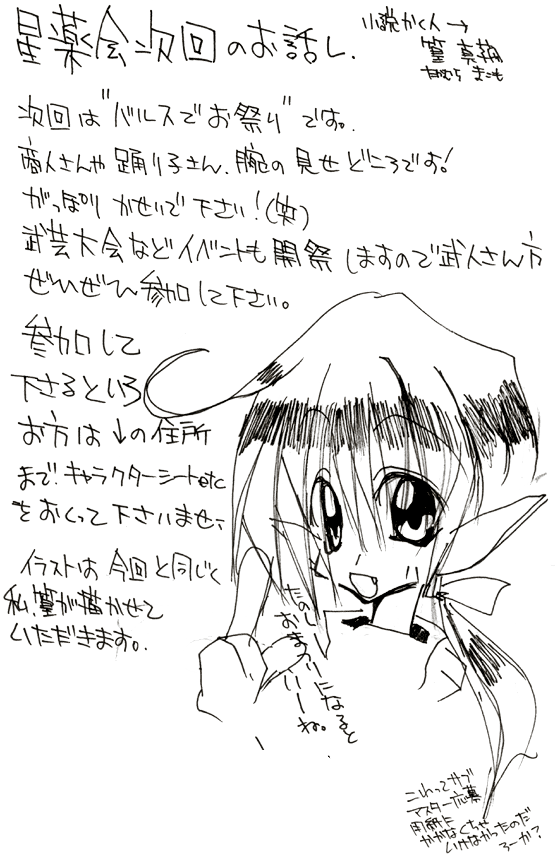 星薬会次回のお話し.
小説かく人→
篁 真萌
たかむら まこも
次回は"バルスでお祭り"です。
商人さんや踊り子さん、腕の見せどころです!
がっぽり かせいで下さい!(笑)
武芸大会などイベントも開祭しますので武人さん方
ぜひぜひ参加して下さい。
参加して
下さるという
お方は↓の住所
まで、キャラクターシートetc
をおくって下さいませ、
イラストは今回と同じく
私、篁が描かせて
いただきます。
たのしー
おまつりになると
いーね。
これってサブ
マスター応募
用紙に
かかなくちゃ
いけなかったのだ
ろーか?